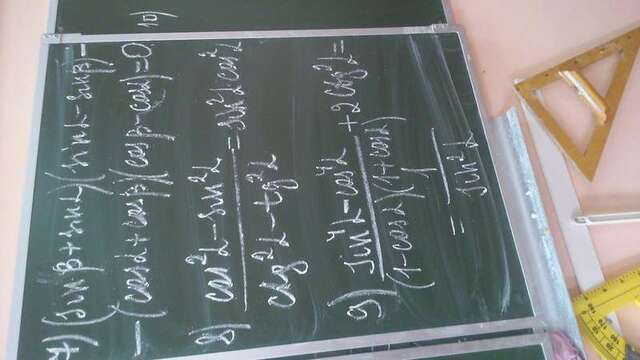 7) (sin β + sin α)(sin α - sin β) -
- (cos α + cos β)(cos β - cos α) = 0
8) (cos²α - sin²α) / (ctg²α - tg²α) = sin²α cos²α
9) (sin⁴α - cos⁴α) / ((1 - cos α)(1 + cos α)) + 2 ctg²α =
= 1 / sin²α
10)